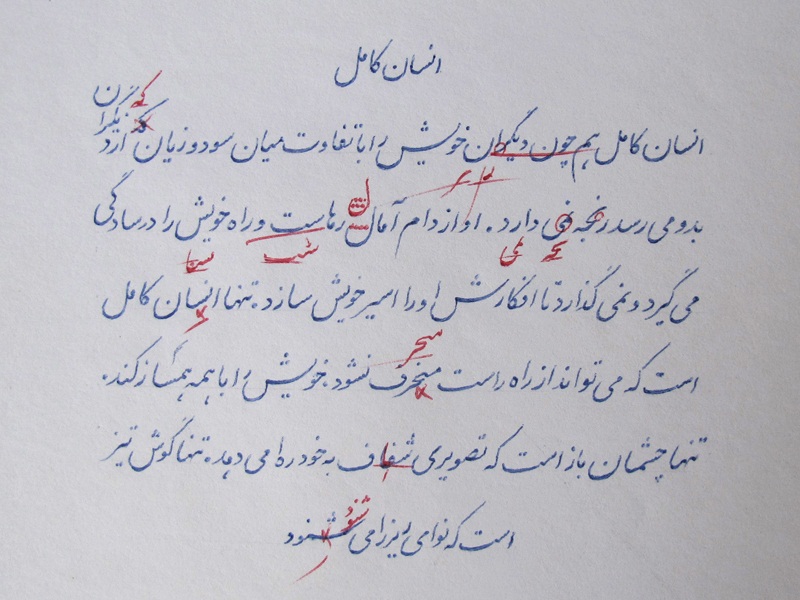 انسان کامل
انسان کامل هم چون دیگران خویش را با تفاوت میان سود و زیان که از
بدو می رسد رنجه نمی دارد. او از دام آمال رهاست و راه خویش را در سادگی
می گیرد و نمی گذارد تا افکارش او را اسیر خویش سازد. تنها انسان کامل
است که می تواند از راه راست منحرف نشود. خویش را با همه همساز کند.
تنها چشمان باز است که تصویری شفاف به خود راه می دهد. تنها گوش تیز
است که نوای ریز را می شنود